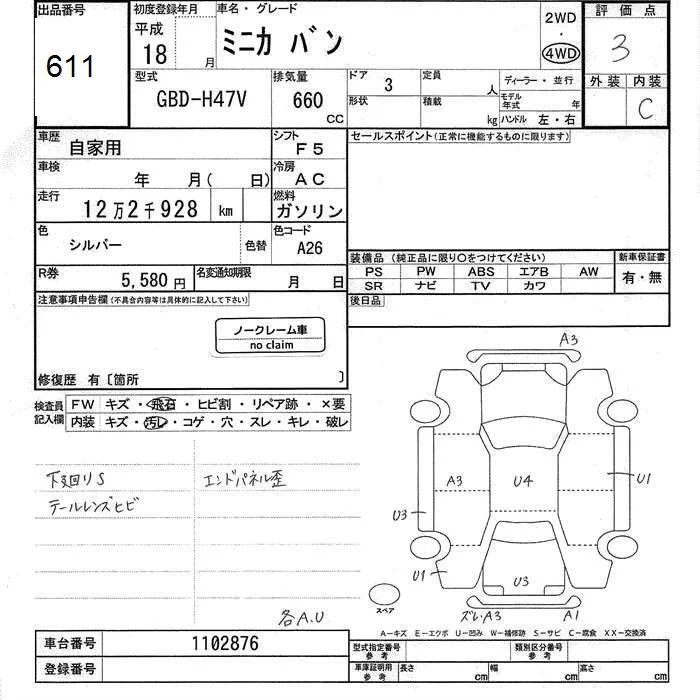 出品番号
611
初度登録年月
平成
18 月
車名・グレード
ミニカ バン
2WD
・
4WD
評価点
3
外装 内装
C
型式
GBD-H47V
排気量
660
CC
ドア
3
定員
人
形状
積載
kg
ディーラー・並行
モデル年式 年
ハンドル 左・右
車歴
自家用
シフト
F5
車検
年 月( 日)
冷房
AC
走行
12万2千928 km
燃料
ガソリン
色
シルバー
色替
色コード
A26
R券
5,580円
名変通知期限
月 日
セールスポイント(正常に機能するものに限ります)
装備品 (純正品に限り○をつけてください)
PS PW ABS エアB AW
SR ナビ TV カワ
新車保証書
有・無
後日品
注意事項申告欄(不具合内容等は具体的に記入して下さい)
ノークレーム車
no claim
修復歴 有〔箇所 〕
検査員記入欄
FW キズ・飛石・ヒビ割・リペア跡・×要
内装 キズ・汚レ・コゲ・穴・スレ・キレ・破レ
下廻りS
テールレンズヒビ
エンドパネル歪
各A.U
A3
A3
U4
U1
U3
U1
U3
ズレA3
A1
スペア
A―キズ E―エクボ U―凹み W―補修跡 S―サビ C―腐食 XX―交換済
車台番号
1102876
登録番号
型式指定番号
参考
類別区分番号
参考
車庫証明用
参考
長さ cm
幅 cm
高さ cm